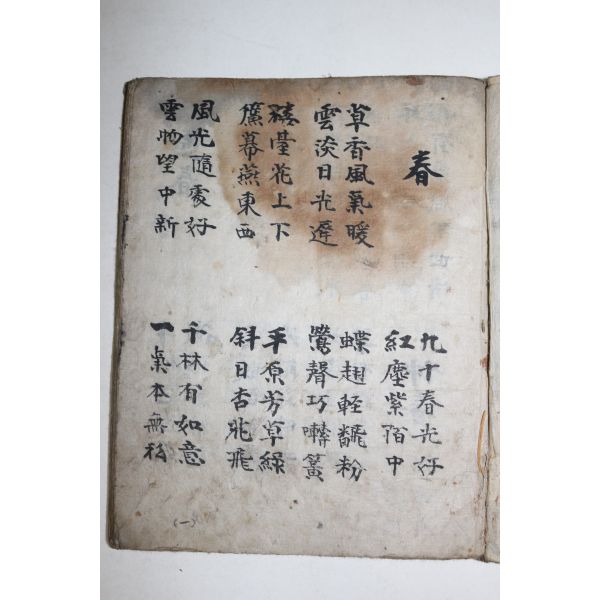 春
草香風氣暖
雲淡日光遲
樓臺花上下
簾幕燕東西
風光隨處好
雲物望中新
九十春光好
紅塵紫陌中
蝶翅輕翻粉
鶯聲巧囀簧
平原芳草綠
斜日杏花飛
千林有如意
一氣本無私
(一)